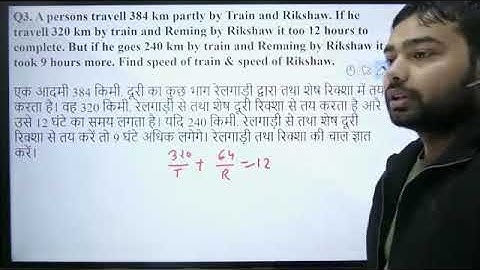 Q3. A persons travell 384 km partly by Train and Rikshaw. If he
travell 320 km by train and Reming by Rikshaw it too 12 hours to
complete. But if he goes 240 km by train and Remaing by Rikshaw it
took 9 hours more. Find speed of train & speed of Rikshaw.
एक आदमी 384 किमी. दूरी का कुछ भाग रेलगाड़ी द्वारा तथा शेष रिक्शा में तय
करता है। वह 320 किमी. रेलगाड़ी से तथा शेष दूरी रिक्शा से तय करता है और
उसे 12 घंटे का समय लगता है। यदि 240 किमी. रेलगाड़ी से तथा शेष दूरी
रिक्शा से तय करें तो 9 घंटे अधिक लगेगे। रेलगाड़ी तथा रिक्शा की चाल ज्ञात
करें।
320/T + 64/R = 12